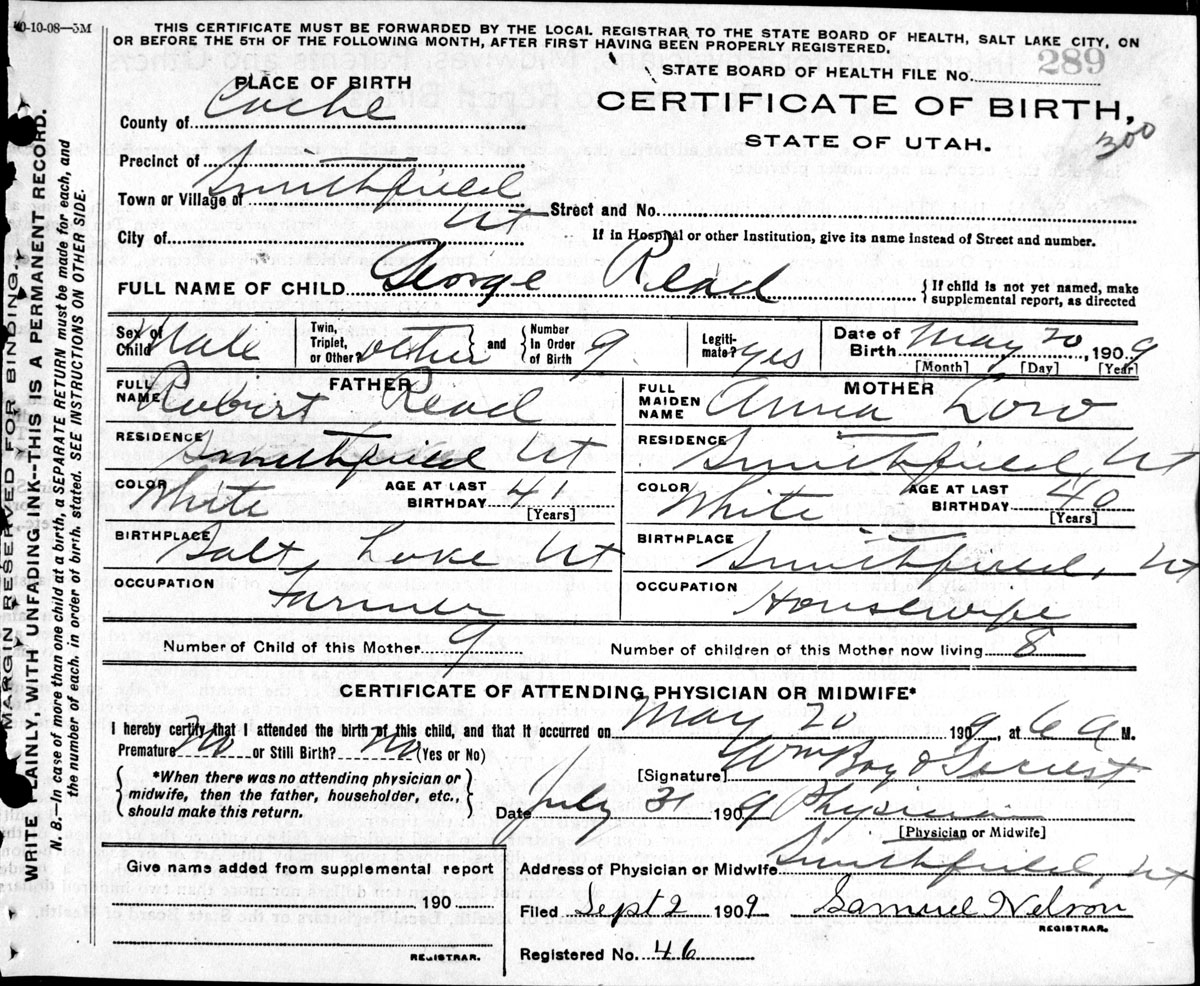 0-10-08—5M
THIS CERTIFICATE MUST BE FORWARDED BY THE LOCAL REGISTRAR TO THE STATE BOARD OF HEALTH, SALT LAKE CITY, ON
OR BEFORE THE 5TH OF THE FOLLOWING MONTH, AFTER FIRST HAVING BEEN PROPERLY REGISTERED.
MARGIN RESERVED FOR BINDING.
WRITE PLAINLY, WITH UNFADING INK--THIS IS A PERMANENT RECORD.
N. B.—In case of more than one child at a birth, a SEPARATE RETURN must be made for each, and
the number of each, in order of birth, stated. SEE INSTRUCTIONS ON OTHER SIDE.
STATE BOARD OF HEALTH FILE No. 289
PLACE OF BIRTH
CERTIFICATE OF BIRTH,
STATE OF UTAH.
300
County of Cache
Precinct of
Town or Village of Smithfield
Ut
Street and No.
City of
If in Hospital or other Institution, give its name instead of Street and number.
FULL NAME OF CHILD George Read
{ If child is not yet named, make supplemental report, as directed
Sex of Child Male
Twin, Triplet, or Other? other and { Number In Order of Birth 9
Legitimate? yes
Date of Birth May 20, 1909
[Month] [Day] [Year]
FATHER
FULL NAME Robirt Read
RESIDENCE Smithfield Ut
COLOR White AGE AT LAST BIRTHDAY 41
[Years]
BIRTHPLACE Salt Lake Ut
OCCUPATION Farmer
MOTHER
FULL MAIDEN NAME Anna Low
RESIDENCE Smithfield, Ut
COLOR White AGE AT LAST BIRTHDAY 40
[Years]
BIRTHPLACE Smithfield, Ut
OCCUPATION Housewife
Number of Child of this Mother 9 Number of children of this Mother now living 8
CERTIFICATE OF ATTENDING PHYSICIAN OR MIDWIFE*
I hereby certify that I attended the birth of this child, and that it occurred on May 20 1909, at 6 a M.
Premature No or Still Birth? No (Yes or No)
{ *When there was no attending physician or midwife, then the father, householder, etc., should make this return. }
[Signature]
Date July 31 1909 Physician
[Physician or Midwife]
Address of Physician or Midwife Smithfield, Ut
Give name added from supplemental report
190
REGISTRAR.
Filed Sept 2 1909 Samuel Nelson
REGISTRAR.
Registered No. 46